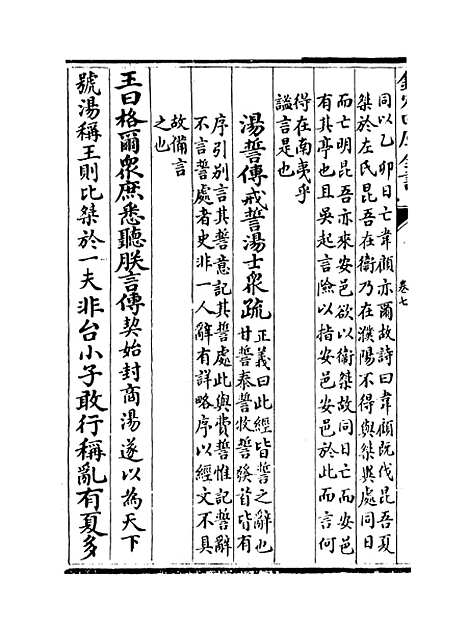 欽定四庫全書
卷七
同以乙卯日亡韋顧亦爾故詩曰韋顧既伐昆吾夏
桀於左氏昆吾在衞乃在濮陽不得與桀異處同日
而亡明昆吾亦來安邑欲以衞桀故同日亡而安邑
有其亭也且吳起言險以指安邑安邑於此而言何
得在南夷乎
謐言是也
湯誓傳戒誓湯士衆疏
正義曰此經皆誓之辭也
甘誓泰誓牧誓發首皆有
序引別言其誓意記其誓處此與費誓惟記誓辭
不言誓處者史非一人辭有詳略序以經文不具
故備言
之也
王曰格爾衆庶悉聽朕言傳契始封商湯遂以為天下
號湯稱王則比桀於一夫非台小子敢行稱亂有夏多